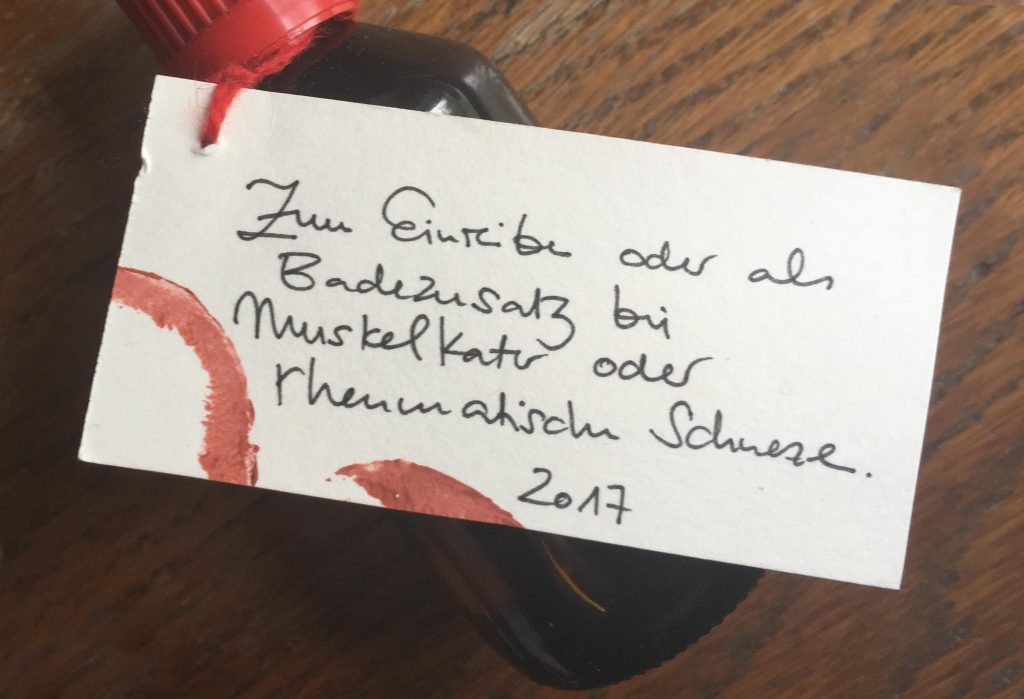 Zum Einreiben oder als
Badezusatz bei
Muskelkater oder
rheumatische Schmerzen.
2017